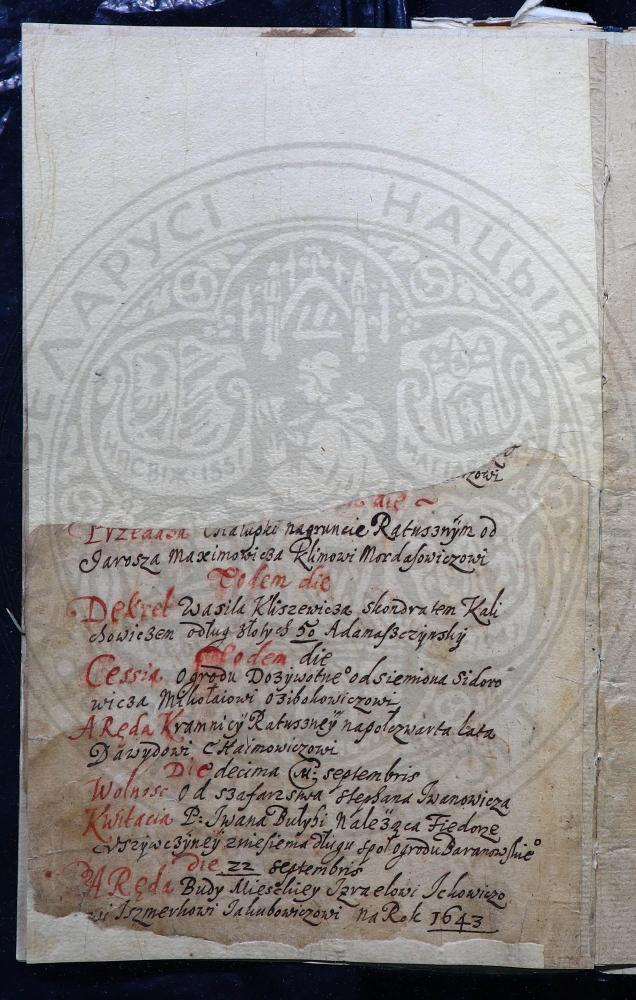 zowi
die
Przedaża Chałupki nagruncie Ratusznÿm od
Jarosza Maximowicza Klimowi Mordasowiczowi
Eodem die
Dekret Wasila Kliszewicza skondratem Kali
chowiczem odług złotych 50 Adamaszczynskÿ
Eodem die
Cessia Ogrodu Dożywotneº od Siemiona Sidoro
wicza Mikołaiowi Ozibokowiczowi
ARęda Kramnicÿ Ratusznëÿ napołczwarta Lata
Dawydowi CHaimowiczowi
Die decima septembris
Wolnosc Od szafarstwa stephana Iwanowicza
Kwitacia P: Iwana Bulÿhi Należąca Fiedorze
zniesienia długu społogrodu Baranowskieº
die 22 septembris
ARęda Budy Mieskiey Izraelowi Ichowiczo
wi Iszmerkowi Jakubowiczowi na Rok 1643
БЕЛАРУСІ НАЦЫЯН